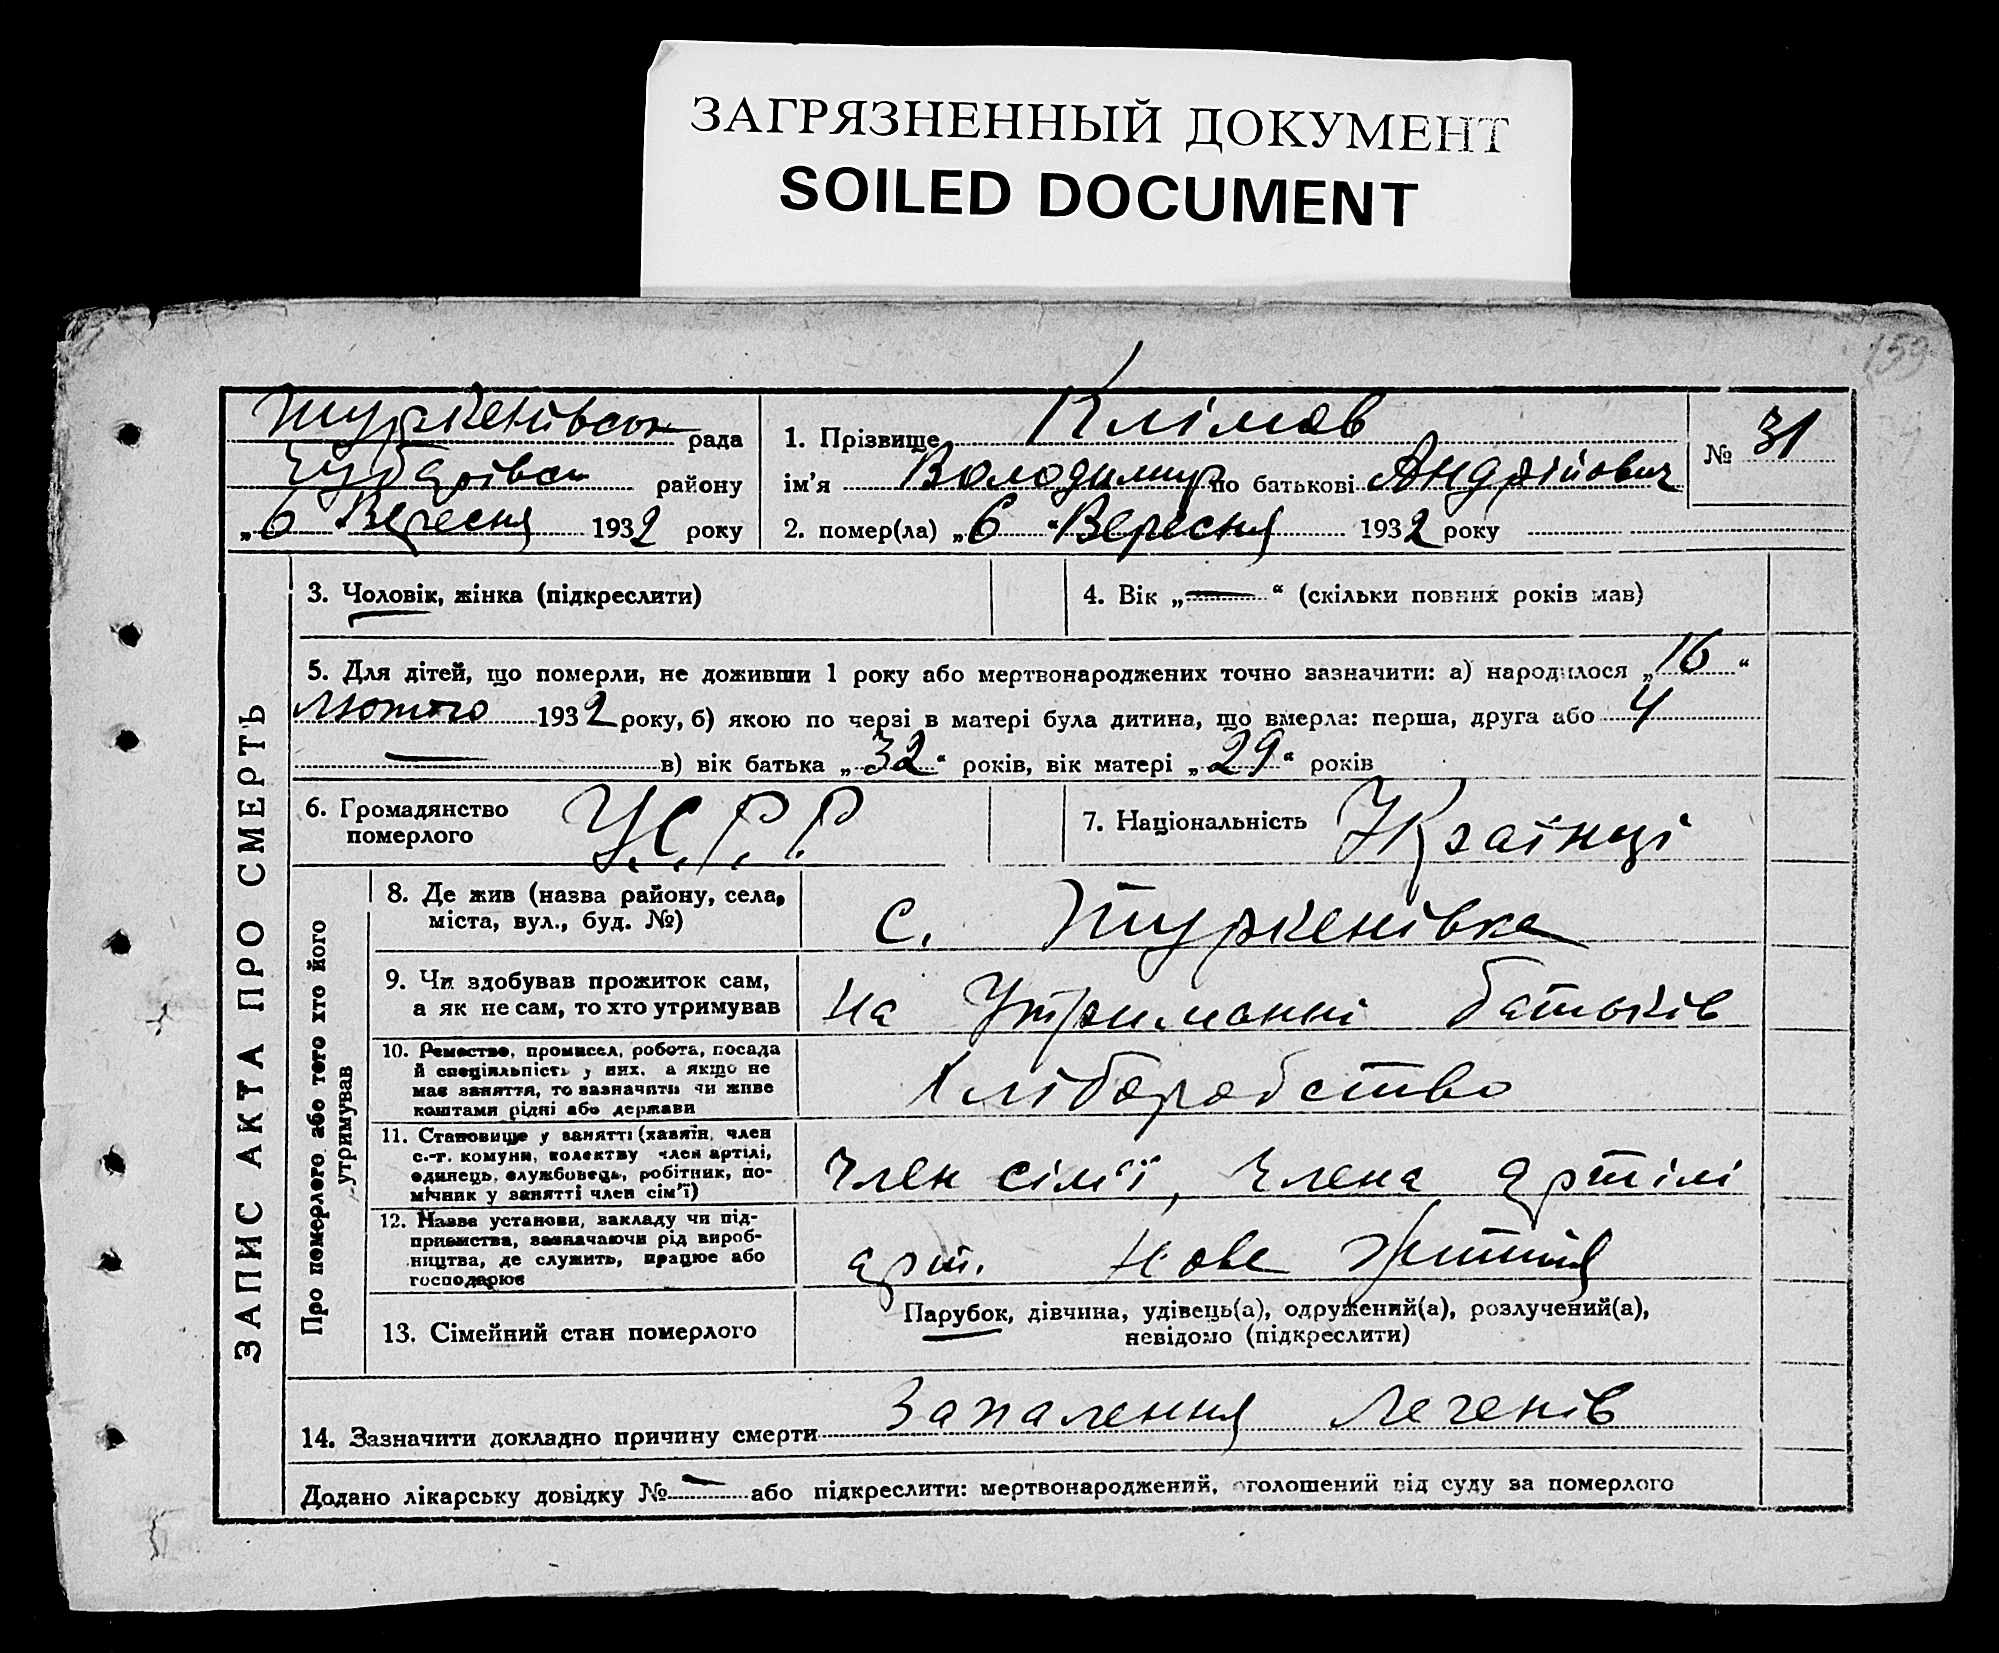 ЗАГРЯЗНЕННЫЙ ДОКУМЕНТ
SOILED DOCUMENT
159
Туркенівськ рада
Чубарівськ району
„6 Вересня 1932 року
1. Прізвище Клімов
ім'я Володимир по батькові Андрійович
2. помер(ла) „6“ Вересня 1932 року
№ 31
ЗАПИС АКТА ПРО СМЕРТЬ
3. Чоловік, жінка (підкреслити)
4. Вік „—“ (скільки повних років мав)
5. Для дітей, що померли, не доживши 1 року або мертвонароджених точно зазначити: а) народилося „16“
Лютого 1932 року, б) якою по черзі в матері була дитина, що вмерла: перша, друга або 4
— в) вік батька „32“ років, вік матері „29“ років
6. Громадянство
померлого
У.С.Р.Р.
7. Національність Українці
Про померлого або того хто його
утримував
8. Де жив (назва району, села,
міста, вул., буд. №)
с. Туркенівка
9. Чи здобував прожиток сам,
а як не сам, то хто утримував
на Утриманні батьків
10. Ремество, промисел, робота, посада
й спеціяльність у них. а якщо не
має заняття, то зазначити чи живе
коштами рідні або держави
Хліборобство
11. Становище у занятті (хазяїн, член
с.-г. комуни, колектву член артілі,
одинець, службовець, робітник, по-
мічник у занятті член сім'ї)
Член сім'ї, Члена артілі
12. Назва установи, закладу чи під-
приємства, зазначаючи рід вироб-
ництва, де служить, працює або
господарює
арт. Нове Життя
13. Сімейний стан померлого
Парубок, дівчина, удівець(а), одружений(а), розлучений(а),
невідомо (підкреслити)
14. Зазначити докладно причину смерти Запалення Легенів
Додано лікарську довідку № — або підкреслити: мертвонароджений, оголошений від суду за померлого